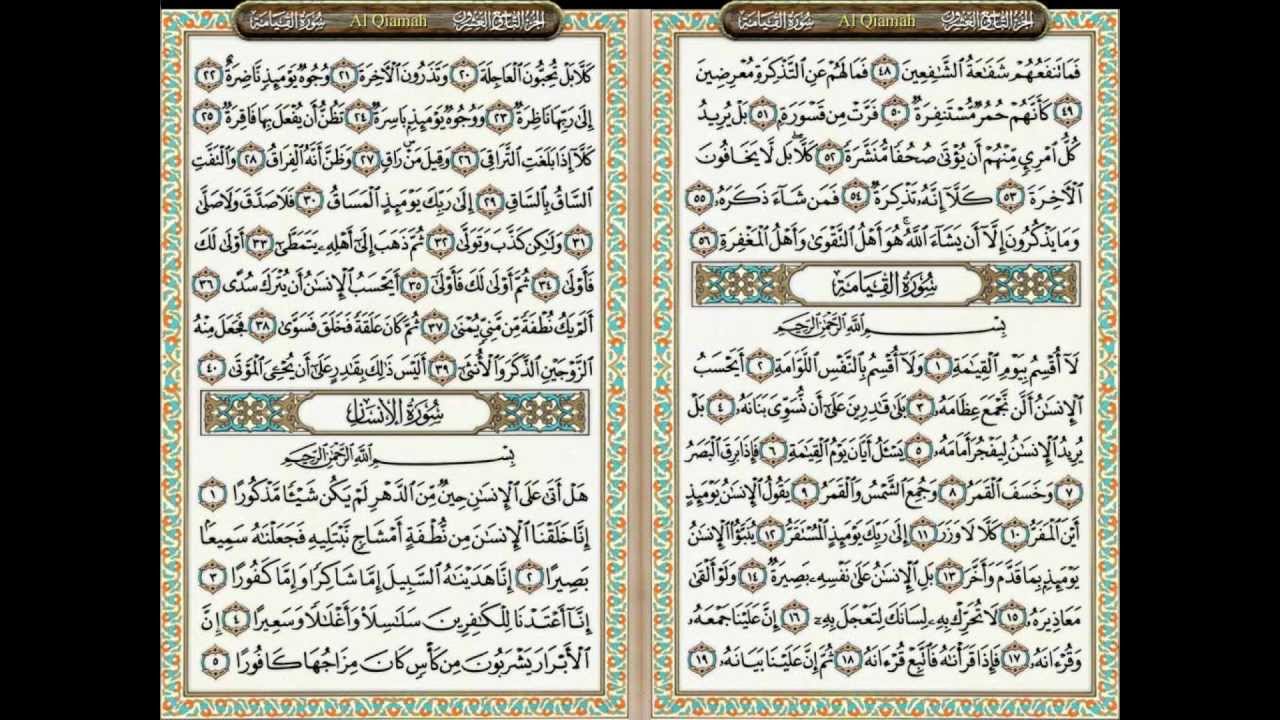 الجزء التاسع والعشرون Al Qiamah سورة القيامة
فَمَا تَنفَعُهُمْ شَفَاعَةُ الشَّافِعِينَ ٤٨ فَمَا لَهُمْ عَنِ التَّذْكِرَةِ مُعْرِضِينَ
٤٩ كَأَنَّهُمْ حُمُرٌ مُّسْتَنفِرَةٌ ٥٠ فَرَّتْ مِن قَسْوَرَةٍ ٥١ بَلْ يُرِيدُ
كُلُّ امْرِئٍ مِّنْهُمْ أَن يُؤْتَى صُحُفًا مُّنَشَّرَةً ٥٢ كَلَّا بَل لَّا يَخَافُونَ
الْآخِرَةَ ٥٣ كَلَّا إِنَّهُ تَذْكِرَةٌ ٥٤ فَمَن شَاءَ ذَكَرَهُ ٥٥
وَمَا يَذْكُرُونَ إِلَّا أَن يَشَاءَ اللَّهُ هُوَ أَهْلُ التَّقْوَى وَأَهْلُ الْمَغْفِرَةِ ٥٦
سُورَةُ الْقِيَامَةِ
بِسْمِ اللَّهِ الرَّحْمَٰنِ الرَّحِيمِ
لَا أُقْسِمُ بِيَوْمِ الْقِيَامَةِ ١ وَلَا أُقْسِمُ بِالنَّفْسِ اللَّوَّامَةِ ٢ أَيَحْسَبُ
الْإِنسَانُ أَلَّن نَّجْمَعَ عِظَامَهُ ٣ بَلَى قَادِرِينَ عَلَى أَن نُّسَوِّيَ بَنَانَهُ ٤ بَلْ
يُرِيدُ الْإِنسَانُ لِيَفْجُرَ أَمَامَهُ ٥ يَسْأَلُ أَيَّانَ يَوْمُ الْقِيَامَةِ ٦ فَإِذَا بَرِقَ الْبَصَرُ
٧ وَخَسَفَ الْقَمَرُ ٨ وَجُمِعَ الشَّمْسُ وَالْقَمَرُ ٩ يَقُولُ الْإِنسَانُ يَوْمَئِذٍ
أَيْنَ الْمَفَرُّ ١٠ كَلَّا لَا وَزَرَ ١١ إِلَى رَبِّكَ يَوْمَئِذٍ الْمُسْتَقَرُّ ١٢ يُنَبَّأُ الْإِنسَانُ
يَوْمَئِذٍ بِمَا قَدَّمَ وَأَخَّرَ ١٣ بَلِ الْإِنسَانُ عَلَى نَفْسِهِ بَصِيرَةٌ ١٤ وَلَوْ أَلْقَى
مَعَاذِيرَهُ ١٥ لَا تُحَرِّكْ بِهِ لِسَانَكَ لِتَعْجَلَ بِهِ ١٦ إِنَّ عَلَيْنَا جَمْعَهُ
وَقُرْآنَهُ ١٧ فَإِذَا قَرَأْنَاهُ فَاتَّبِعْ قُرْآنَهُ ١٨ ثُمَّ إِنَّ عَلَيْنَا بَيَانَهُ ١٩
الجزء التاسع والعشرون Al Qiamah سورة القيامة
كَلَّا بَلْ تُحِبُّونَ الْعَاجِلَةَ ٢٠ وَتَذَرُونَ الْآخِرَةَ ٢١ وُجُوهٌ يَوْمَئِذٍ نَّاضِرَةٌ ٢٢
إِلَى رَبِّهَا نَاظِرَةٌ ٢٣ وَوُجُوهٌ يَوْمَئِذٍ بَاسِرَةٌ ٢٤ تَظُنُّ أَن يُفْعَلَ بِهَا فَاقِرَةٌ ٢٥
كَلَّا إِذَا بَلَغَتِ التَّرَاقِيَ ٢٦ وَقِيلَ مَنْ رَاقٍ ٢٧ وَظَنَّ أَنَّهُ الْفِرَاقُ ٢٨ وَالْتَفَّتِ
السَّاقُ بِالسَّاقِ ٢٩ إِلَى رَبِّكَ يَوْمَئِذٍ الْمَسَاقُ ٣٠ فَلَا صَدَّقَ وَلَا صَلَّى
٣١ وَلَكِن كَذَّبَ وَتَوَلَّى ٣٢ ثُمَّ ذَهَبَ إِلَى أَهْلِهِ يَتَمَطَّى ٣٣ أَوْلَى لَكَ
فَأَوْلَى ٣٤ ثُمَّ أَوْلَى لَكَ فَأَوْلَى ٣٥ أَيَحْسَبُ الْإِنسَانُ أَن يُتْرَكَ سُدًى ٣٦
أَلَمْ يَكُ نُطْفَةً مِّن مَّنِيٍّ يُمْنَى ٣٧ ثُمَّ كَانَ عَلَقَةً فَخَلَقَ فَسَوَّى ٣٨ فَجَعَلَ مِنْهُ
الزَّوْجَيْنِ الذَّكَرَ وَالْأُنثَى ٣٩ أَلَيْسَ ذَلِكَ بِقَادِرٍ عَلَى أَن يُحْيِيَ الْمَوْتَى ٤٠
سُورَةُ الْإِنسَانِ
بِسْمِ اللَّهِ الرَّحْمَٰنِ الرَّحِيمِ
هَلْ أَتَى عَلَى الْإِنسَانِ حِينٌ مِّنَ الدَّهْرِ لَمْ يَكُن شَيْئًا مَّذْكُورًا ١
إِنَّا خَلَقْنَا الْإِنسَانَ مِن نُّطْفَةٍ أَمْشَاجٍ نَّبْتَلِيهِ فَجَعَلْنَاهُ سَمِيعًا
بَصِيرًا ٢ إِنَّا هَدَيْنَاهُ السَّبِيلَ إِمَّا شَاكِرًا وَإِمَّا كَفُورًا ٣
إِنَّا أَعْتَدْنَا لِلْكَافِرِينَ سَلَاسِلَا وَأَغْلَالًا وَسَعِيرًا ٤ إِنَّ
الْأَبْرَارَ يَشْرَبُونَ مِن كَأْسٍ كَانَ مِزَاجُهَا كَافُورًا ٥